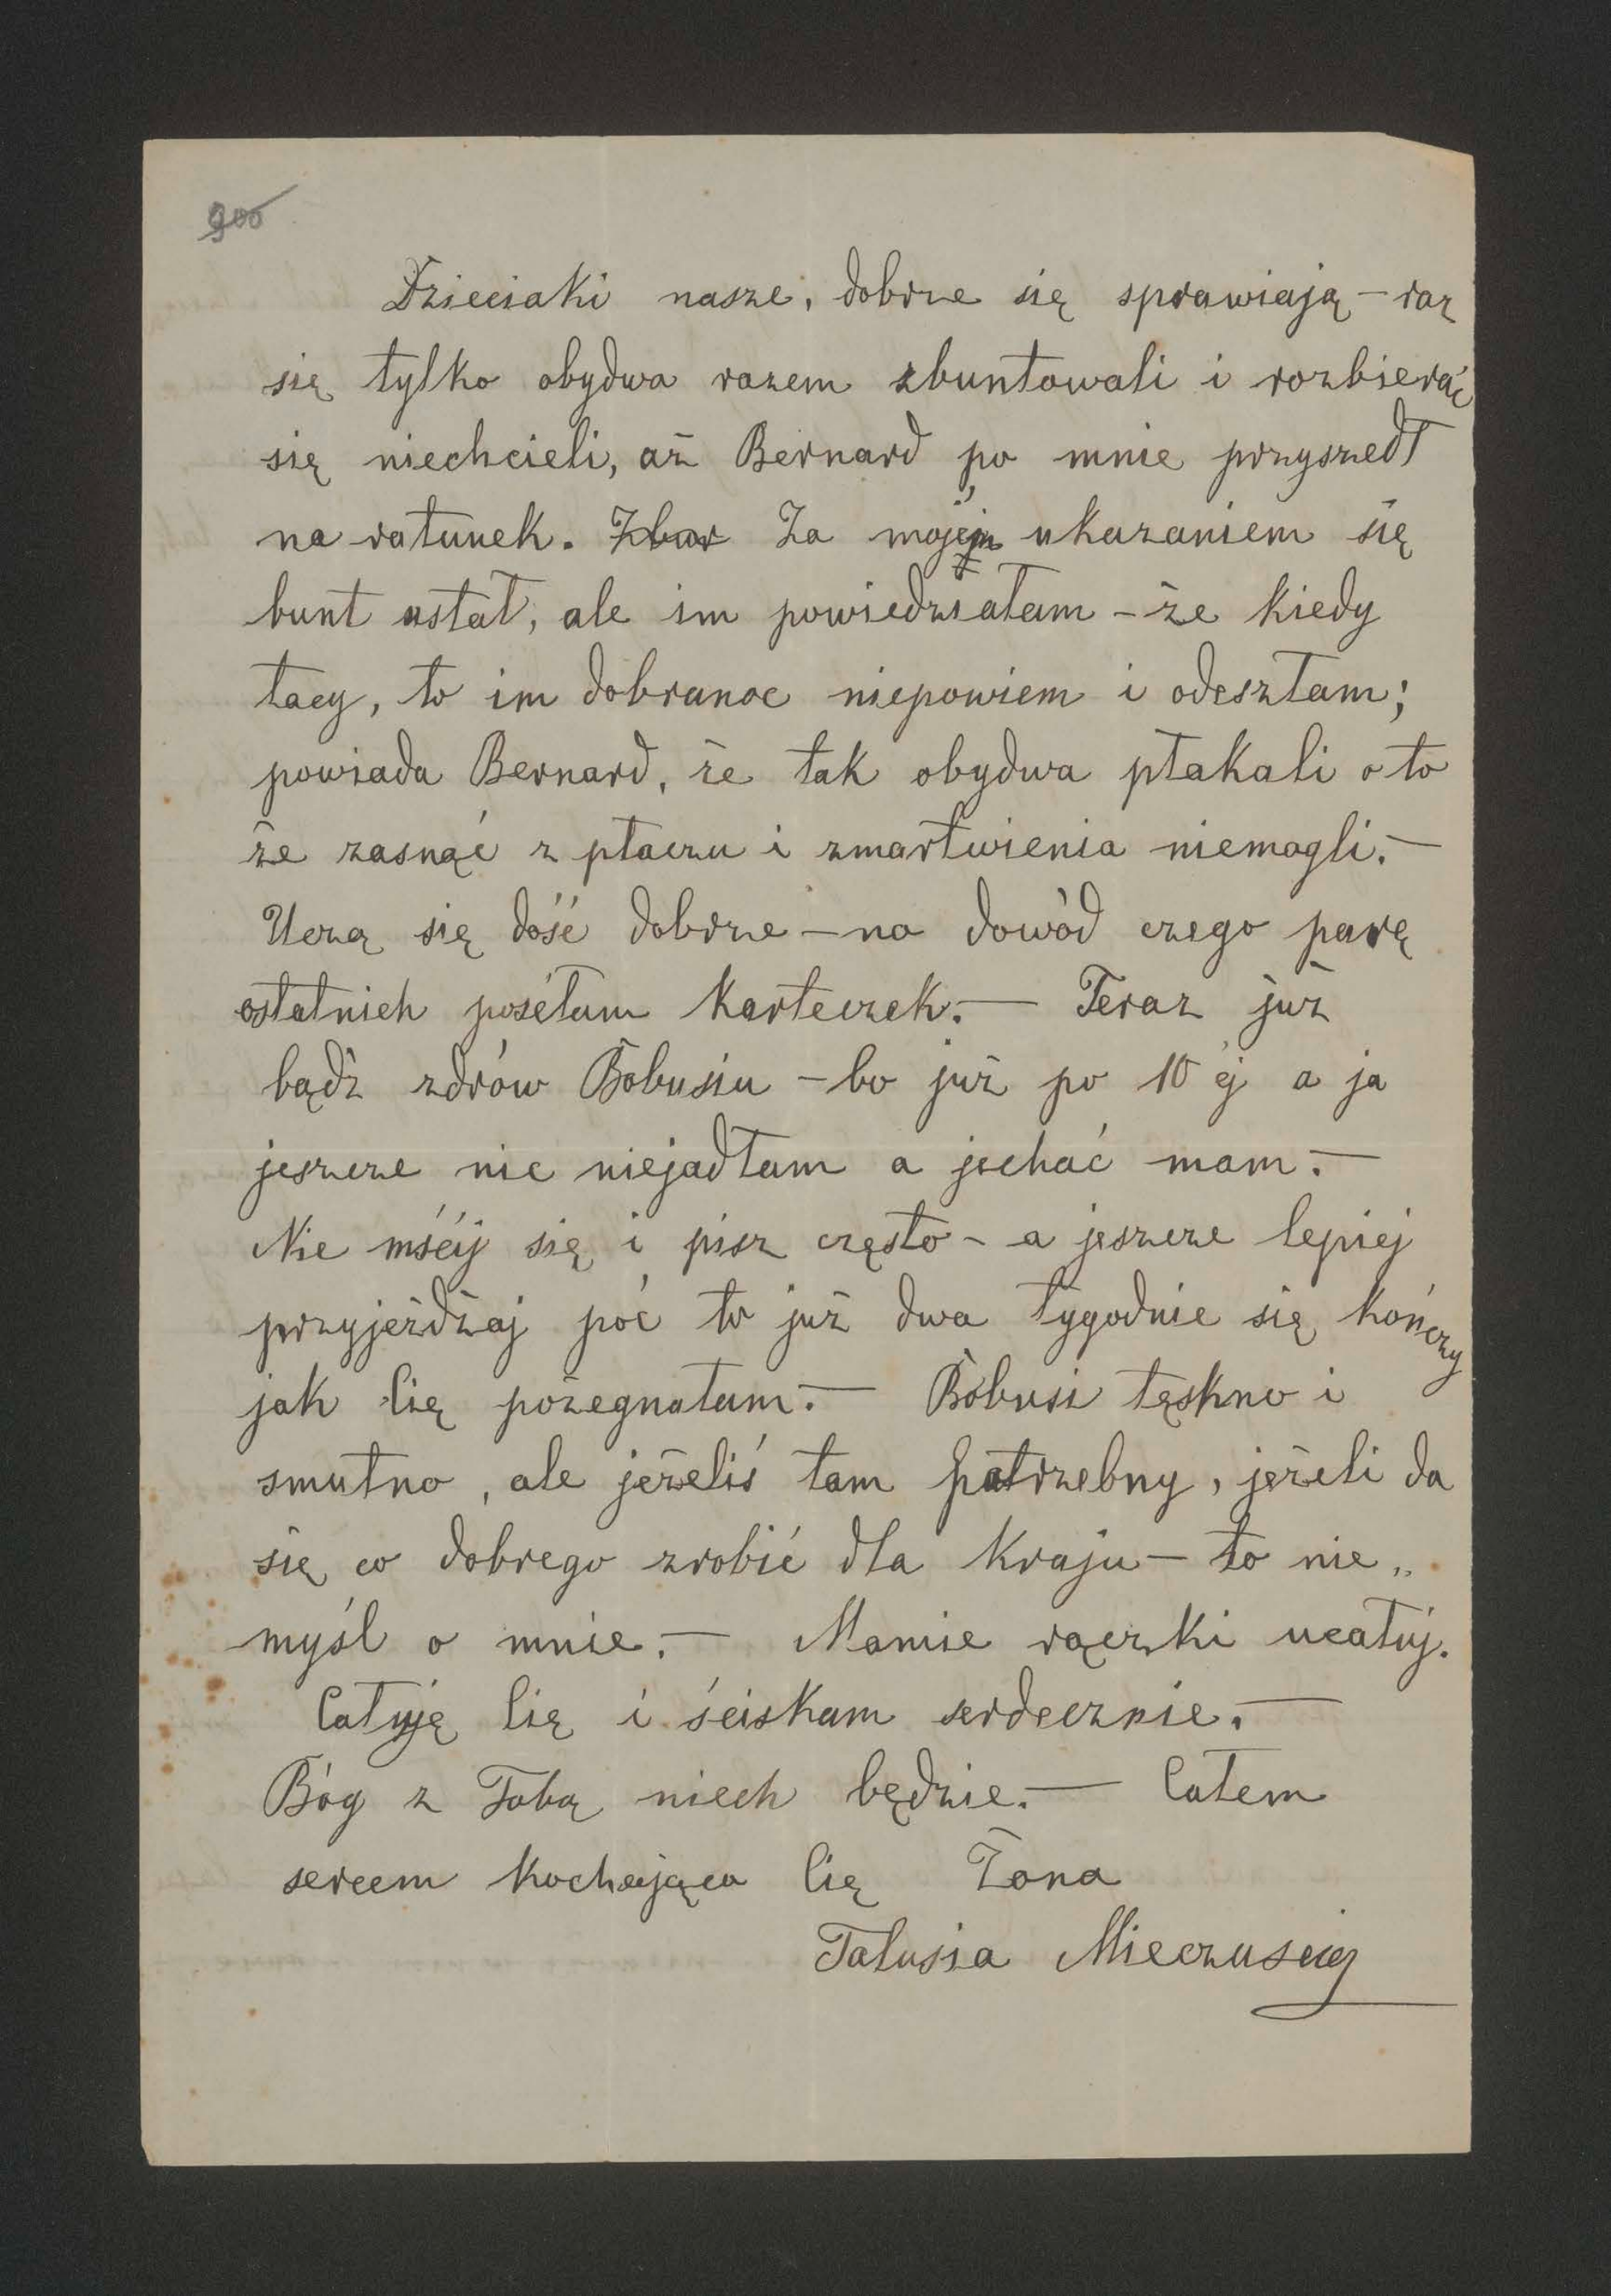 900
Dzieciaki nasze, dobrze się sprawiają – raz
się tylko obydwa razem zbuntowali i rozbierać
się niechcieli, aż Bernard po mnie przyszedł
na ratunek. Za mojém ukazaniem się
bunt ustał, ale im powiedziałam – że kiedy
tacy, to im dobranoc niepowiem i odeszłam;
powiada Bernard, że tak obydwa płakali o to
że zasnąć z płaczu i zmartwienia niemogli. –
Uczą się dość dobrze – na dowód czego parę
ostatnich posełam karteczek. – Teraz już
bądź zdrów Bobusiu – bo już po 10 ej a ja
jeszcze nic niejadłam a jechać mam. –
Nie mścij się i pisz często – a jeszcze lepiej
przyjeżdżaj poć to już dwa tygodnie się kończy
jak Cię pożegnałam. – Bobusi tęskno i
smutno, ale jeżeliś tam potrzebny, jeżeli da
się co dobrego zrobić dla kraju – to nie„
myśl o mnie. – Mamie rączki ucałuj.
Całuję Cię i ściskam serdecznie. –
Bóg z Tobą niech będzie. – Całem
sercem kochająca Cię Żona
Talusia Mieczusiej